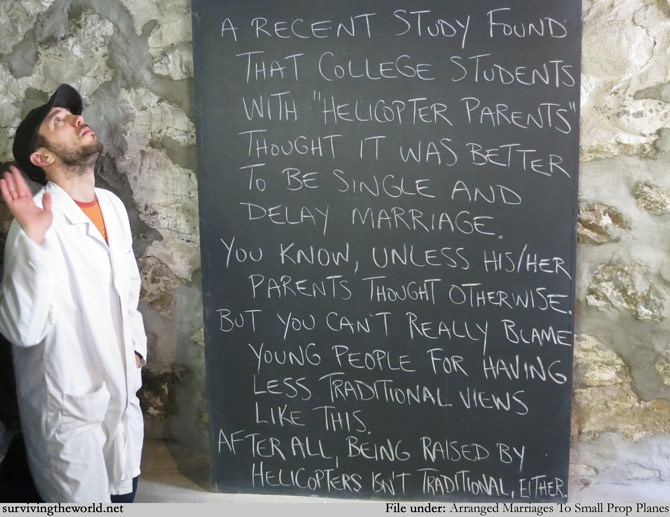 A RECENT STUDY FOUND
THAT COLLEGE STUDENTS
WITH "HELICOPTER PARENTS"
THOUGHT IT WAS BETTER
TO BE SINGLE AND
DELAY MARRIAGE.
YOU KNOW, UNLESS HIS/HER
PARENTS THOUGHT OTHERWISE.
BUT YOU CAN'T REALLY BLAME
YOUNG PEOPLE FOR HAVING
LESS TRADITIONAL VIEWS
LIKE THIS.
AFTER ALL, BEING RAISED BY
HELICOPTERS ISN'T TRADITIONAL, EITHER.
survivingtheworld.net
File under: Arranged Marriages To Small Prop Planes